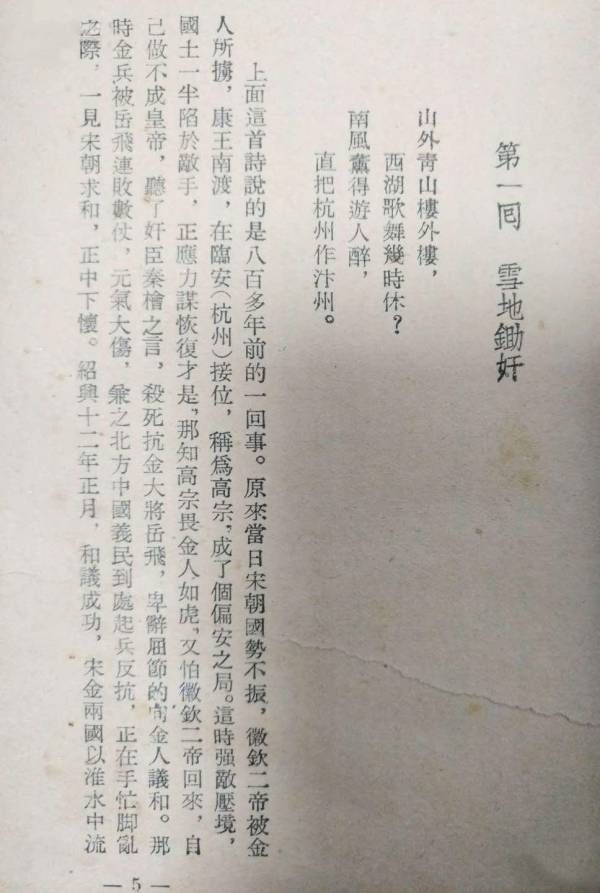 第一回　雪地鋤奸
山外青山樓外樓，
西湖歌舞幾時休？
南風薰得遊人醉，
直把杭州作汴州。
上面這首詩說的是八百多年前的一回事。原來當日宋朝國勢不振，徽欽二帝被金
人所擄，康王南渡，在臨安（杭州）接位，稱爲高宗，成了個偏安之局。這時强敵壓境，
國土一半陷於敵手，正應力謀恢復才是，那知高宗畏金人如虎，又怕徽欽二帝回來，自
己做不成皇帝，聽了奸臣秦檜之言，殺死抗金大將岳飛，卑辭屈節的向金人議和。那
時金兵被岳飛連敗數仗，元氣大傷，兼之北方中國義民到處起兵反抗，正在手忙脚亂
之際，一見宋朝求和，正中下懷。紹興十二年正月，和議成功，宋金兩國以淮水中流
— 5 —